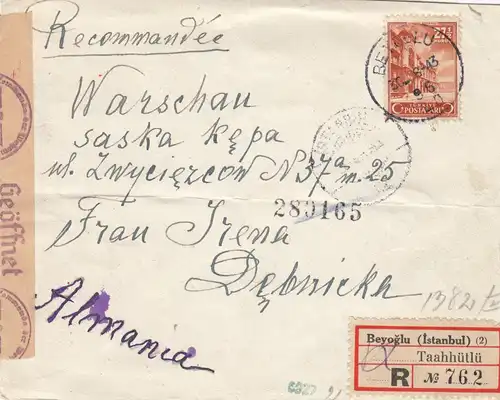 Recommandée
Warschau
saska kępa
ul. Zwycięzcow N 37a m. 25
289165
Frau Irena
Dębnicka
Almania
BEYOĞLU
TÜRKİYE
POSTALARI
Geöffnet
Beyoğlu (İstanbul) (2)
Taahhütlü
R № 762